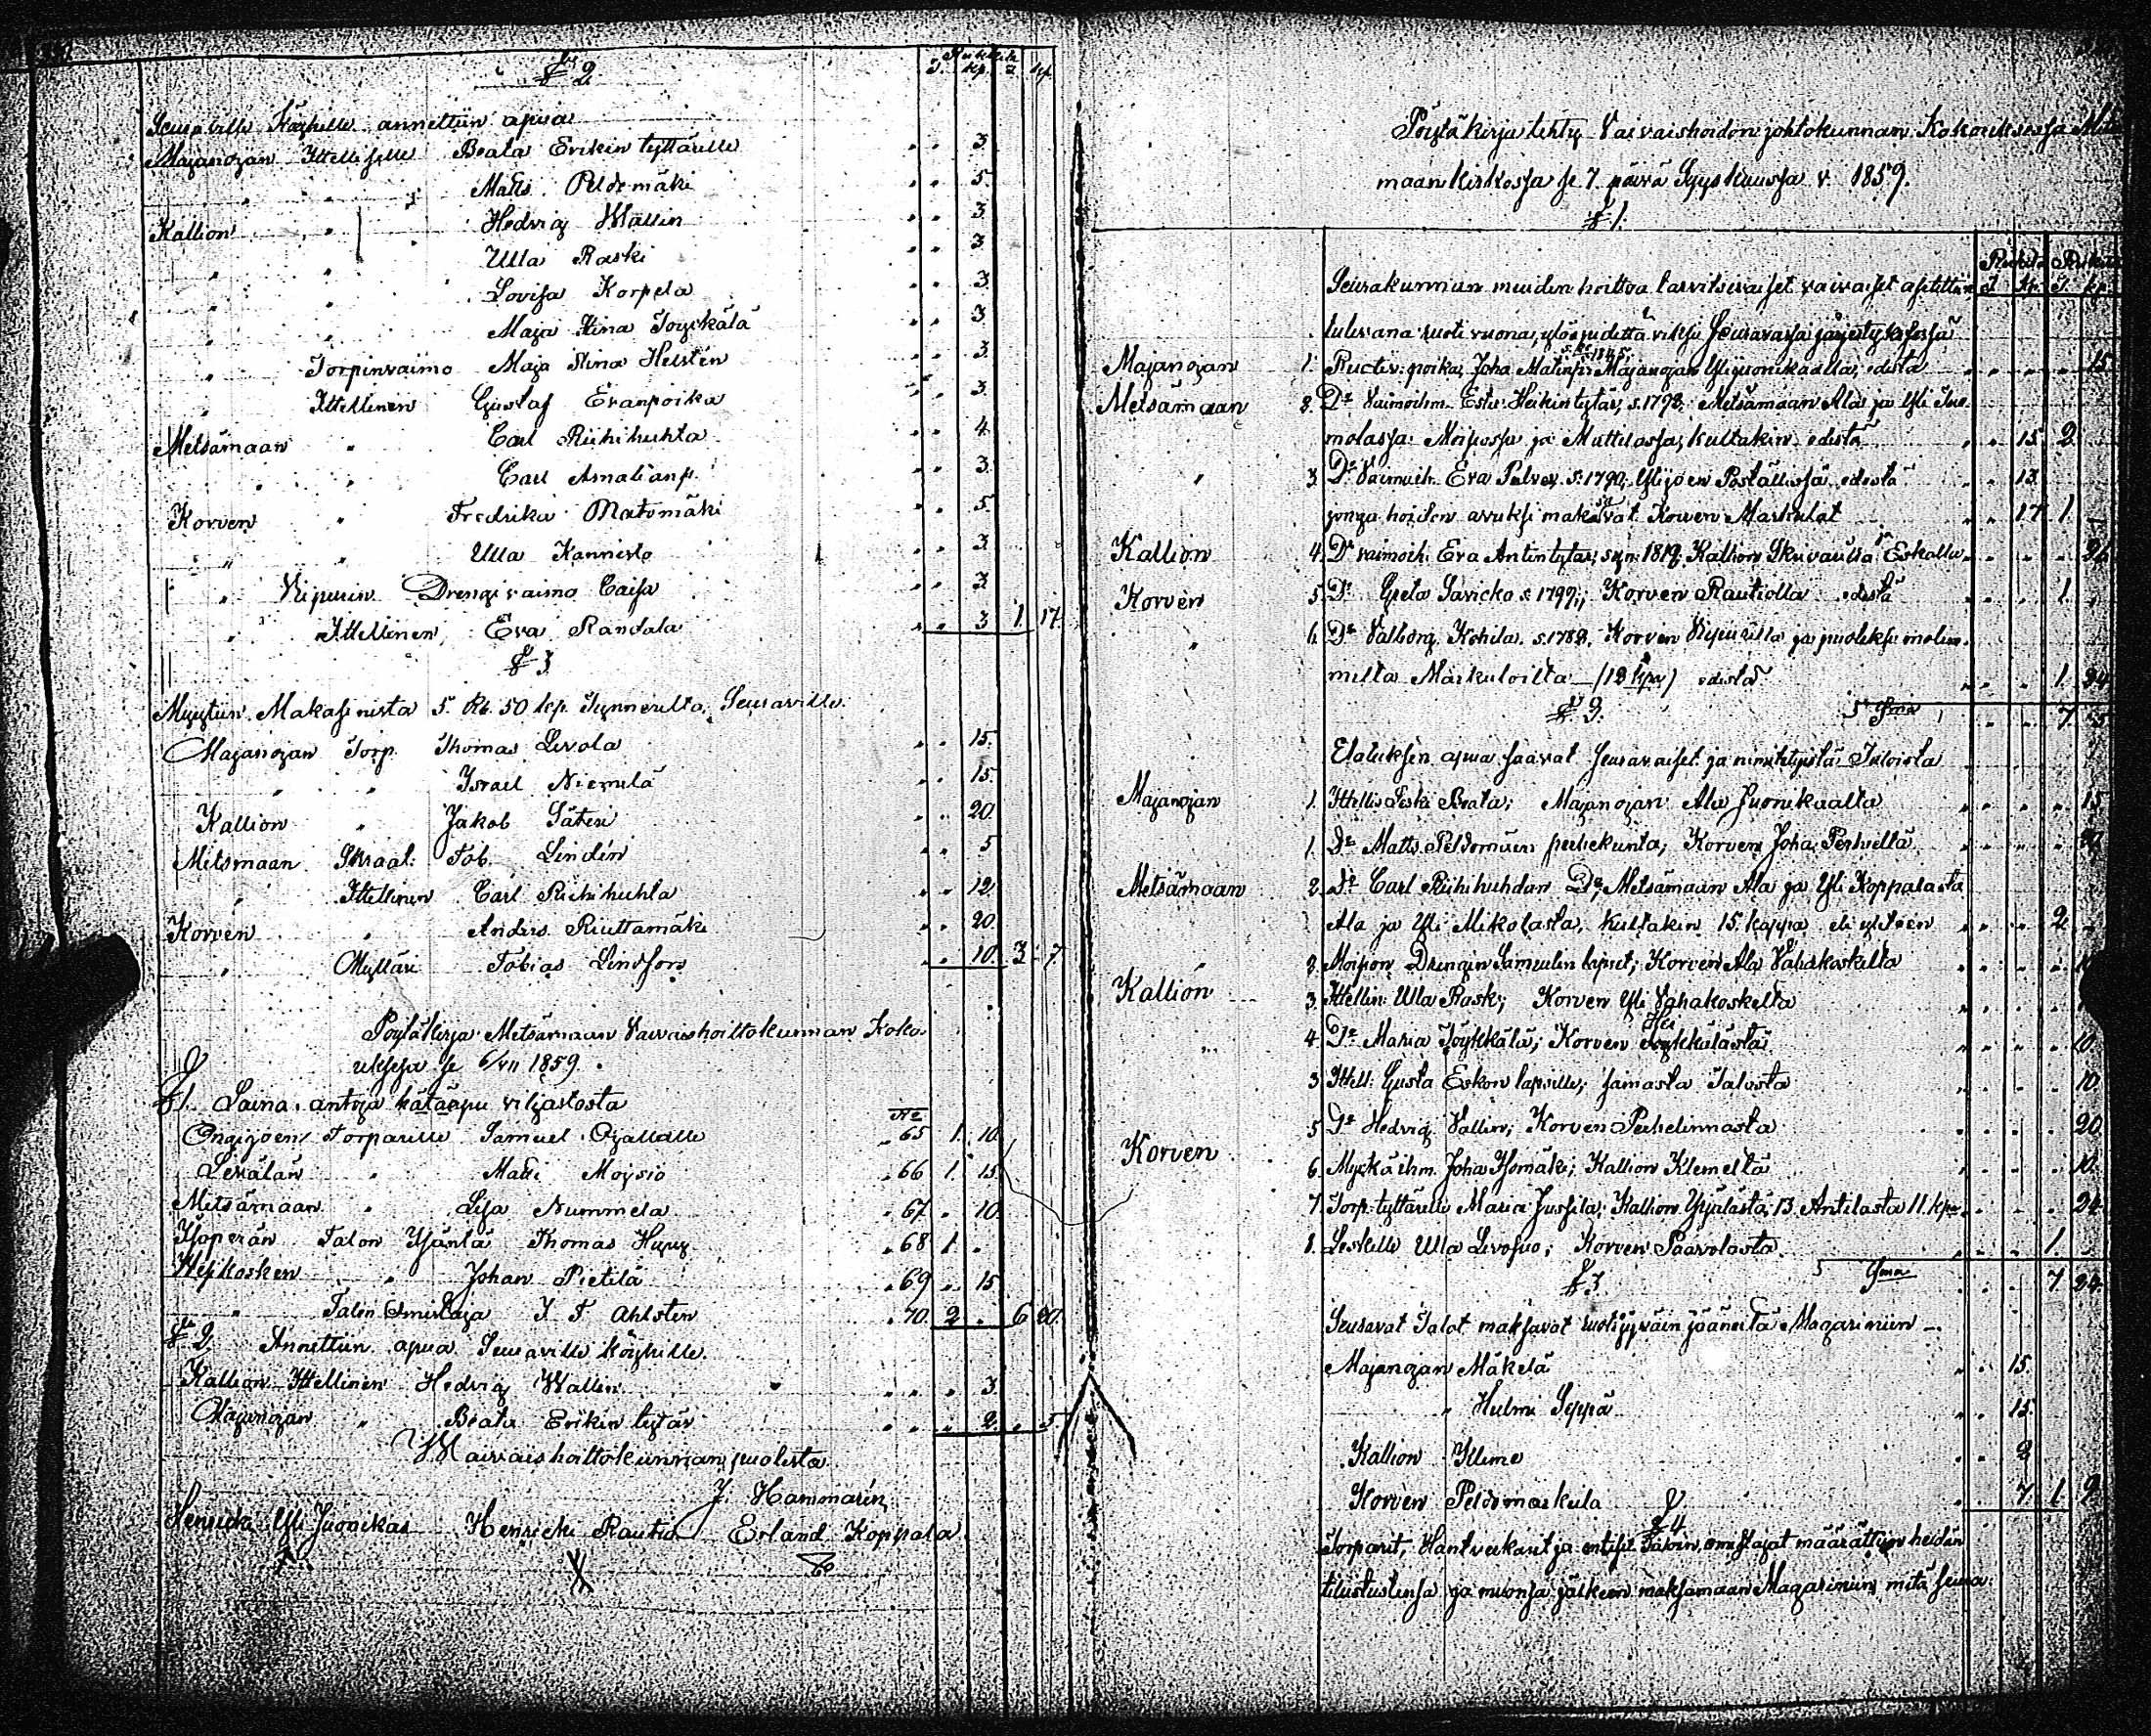 § 2
Rukkita
T. kp. T. kp.
Seuraville Köyhille annettiin apua
Majanojan Ittelliselle Beata Erikin tyttärelle " " 3
" " Matts Peldomäki " " 5.
Kallion " Hedvig Wallin " " 3
" " Ulla Raski " " 3
" " Lovisa Korpela " " 3
" " Maja Stina Töyckälä " " 3
" Torpinvaimo Maja Stina Helstén " " 3.
" Ittellinen Gustaf Evanpoika " " 3.
Metsämaan " Carl Riihihuhta " " 4
" " Carl Amalianp. " " 3.
Korven " Fredrika Matomäki " " 5
" " Ulla Kannisto " " 3
" Vipurin Drengi vaimo Caisa " " 3
" Ittellinen Eva Randala " " 3 1. 17.
§ 3
Myytiin Makasinista 5. Rb. 50 kp. Tynnerilta, Seuraville
Majanojan Torp. Thomas Levola " " 15.
" " Israel Niemelä " " 15
Kallion " Jakob Säteri " " 20
Metsmaan Skraat: Tob. Lindén " " 5
" Ittellinen Carl Riihihuhta " " 12
Korven " Anders Riuttamäki " " 20.
" Mylläri Tobias Lindfors " " 10. 3 7.
Pöytäkirja Metsämaan Vaivaishoittokunnan Koko-
uksssa se 6/VII 1859.
§ 1. Laina antoja hätäapu viljastosta
No
Ongijoen Torparille Samuel Ojallalle " 65 1. 10.
Lekälän " Matti Moysio " 66 1. 15.
Metsämaan " Lisa Nummela " 67 " 10.
Isoperän Talon Isäntä Thomas Hyyy " 68 1. "
Hejkosken " Johan Pietilä " 69 " 15
" Talon Omistaja J. F. Ahlsten " 70. 2 " 6 20.
§ 2. Annettiin apua Seuraville köyhille.
Kallion Ittellinen Hedvig Wallin " " " 3.
Majanojan " Beata Erikin tytär " " " 2. " 5
Waivaishoittokunnan puolesta
J. Hammarén
Henricki Yli Juonikas Henricki Rautio Erland Koppala
Pöytäkirja tehty Vaivaishoidon johtokunnan Kokouksessa
maan kirkossa se 7. päivä Syyskuussa v. 1859.
§ 1.
T. kp. T. kp.
Seurakunnan muiden hoittoa tarvitsevaiset vaivaiset asitettiin
tulevana ruoti vuona, ylöspidettäviksi seuravassa järjestyksessä
Majanojan 1. Ructiv. poika Joha Matinp: Majanojan Yli juonikaalla, edestä " " " 15
Metsämaan 2. Do Vaimoihm. Ester Heikintytär, s. 1793, Metsämaan Ala ja Yli
molassa Moisiossa ja Mattilassa, kultakin edestä " " 15. 2.
" 3. Do Vaimoih. Eva Palven s. 1790, Ylijoen Poställissä edestä " " 13.
jonga hoidon avuksi maksavat Korven Markulat " " 17. 1. "
Kallion 4. Do vaimoih. Eva Antintytär, syn. 1819, Kallion Eskolla " " " 26
Korven 5. Do Greta Saricko s. 1797, Korven Rautiolla edestä " " " 1. "
" 6. Do Valborg Kohila. s. 1788, Korven Vipurilla ja puoleksi molem-
milta Markuloilta (12 kpa) edestä " " " 1. 24
§ 2. Sma " " " 7
Elatuksen apua saavat seuravaiset ja nimitetyistä Taloista
Majanojan 1. Ittellis Leski Beata; Majanojan Ala Juonikaalta " " " " 15
1. Do Matts Peldomäen perhekunta; Korven Joha Pertvellä " " " "
Metsämaan 2. Do Carl Riihihuhdan Do, Metsämaan Ala ja Yli Koppalasta
Ala ja Yli Mikolasta, kultakin 15. kappa eli yhteen " " " 2. "
" 2. Moision Drengin Samuelin lapset; Korven Ala Vahakoskelta " " "
Kallion 3. Ittellin: Ulla Rask; Korven Yli Vahakoskelta " " "
" 4. Do Maria Töykkälä; Korven " " " " 10.
3. Ittell: Gusta Eskon lapsille; samasta Talosta " " " 10.
5. Do Hedvig Vallin; Korven Perhelinnasta " " " 20
Korven 6. Myckä ihm. Joha Isomäki; Kallion Klemelä " " " 10.
7. Torp. tyttärelle Maria Jussila; Kallion Yrjälästä 13. Antilasta 11. kpa " " " 24.
8. Leskelle Ulla Levosuo; Korven Paavolasta " " 1.
§ 3 Sma " " 7 24
Seuravat Talot maksavat ruotijyväin jääneitä Magasiniin
Majanojan Mäkelä " " 15.
" Hulmi Seppä " " 15.
Kallion Klime " " 2
Korven Peldomarkula " " 7. 1. 9
§ 4
Torparit, Hantverkarit ja entiset Talon omistajat määrättiin heidän
tilustustensa ja muonsa jälkeen maksamaan Magasiniin mitä seura-